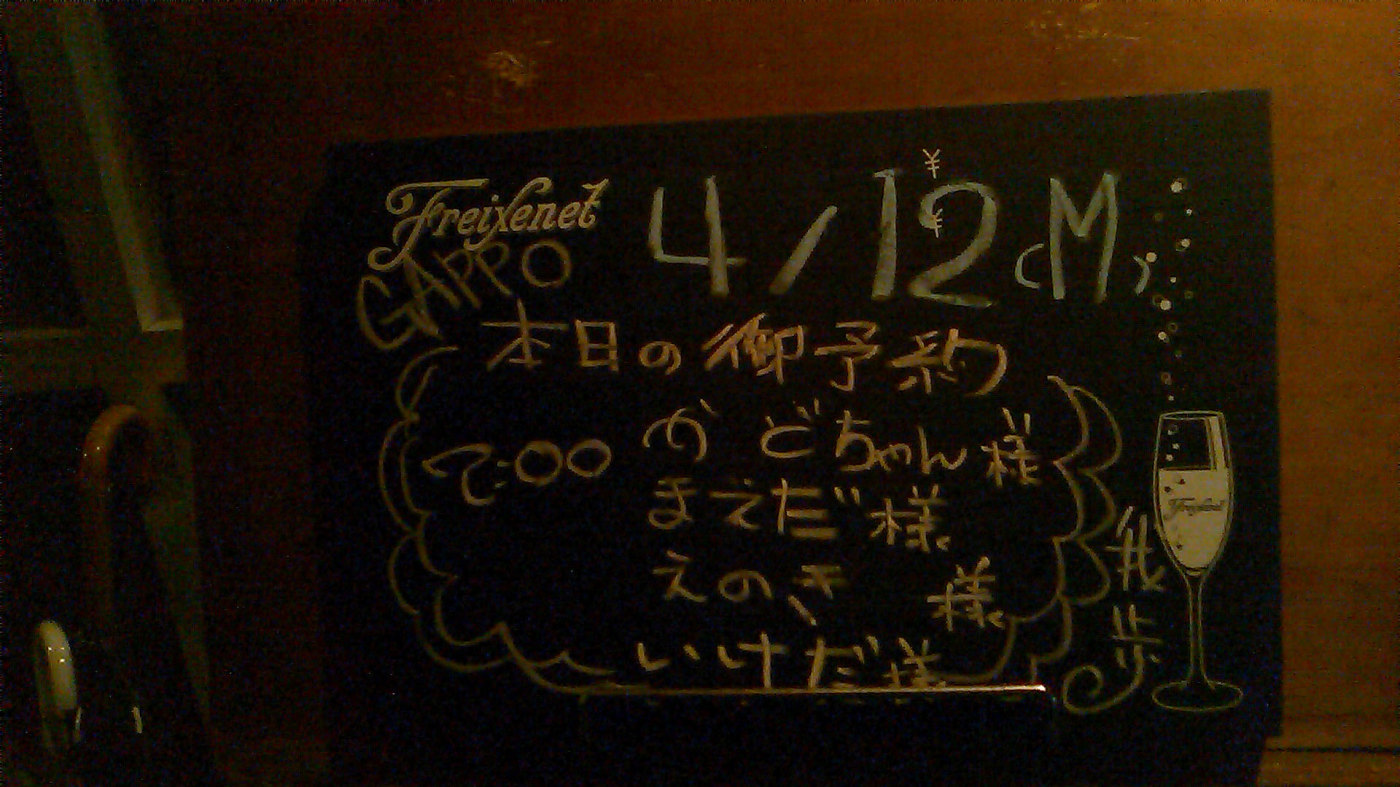 Freixenet
GAPPO
4/12(M)
¥
¥
本日の御予約
7:00 かどちゃん様
まえだ様
えのき様
いけだ様
我歩
Freixenet